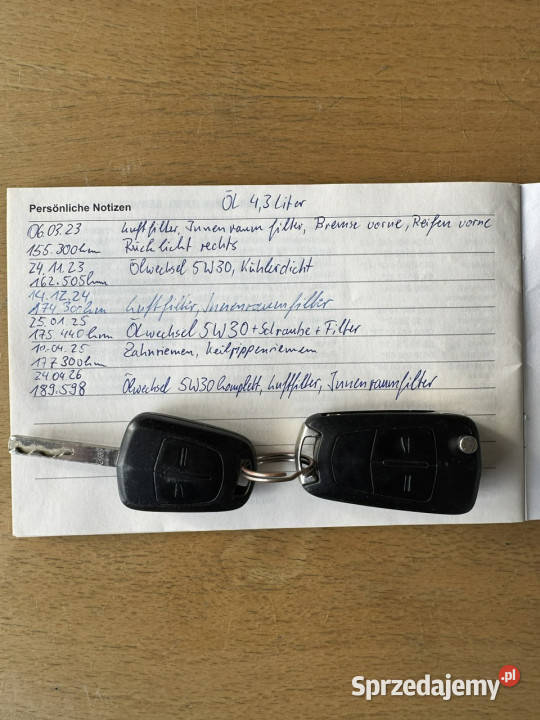 Öl 4,3 Liter
Persönliche Notizen
06.03.23 Luftfilter, Innenraumfilter, Bremse vorne, Reifen vorne
155.300km Rücklicht rechts
24.11.23 Ölwechsel 5W30, Kühlerdicht
162.505km
14.12.24 Luftfilter, Innenraumfilter
174300km
25.01.25 Ölwechsel 5W30 + Schraube + Filter
175.440km
10.04.25 Zahnriemen, Keilrippenriemen
177300km
24.04.26 Ölwechsel 5W30 komplett, Luftfilter, Innenraumfilter
189.598
Sprzedajemy.pl